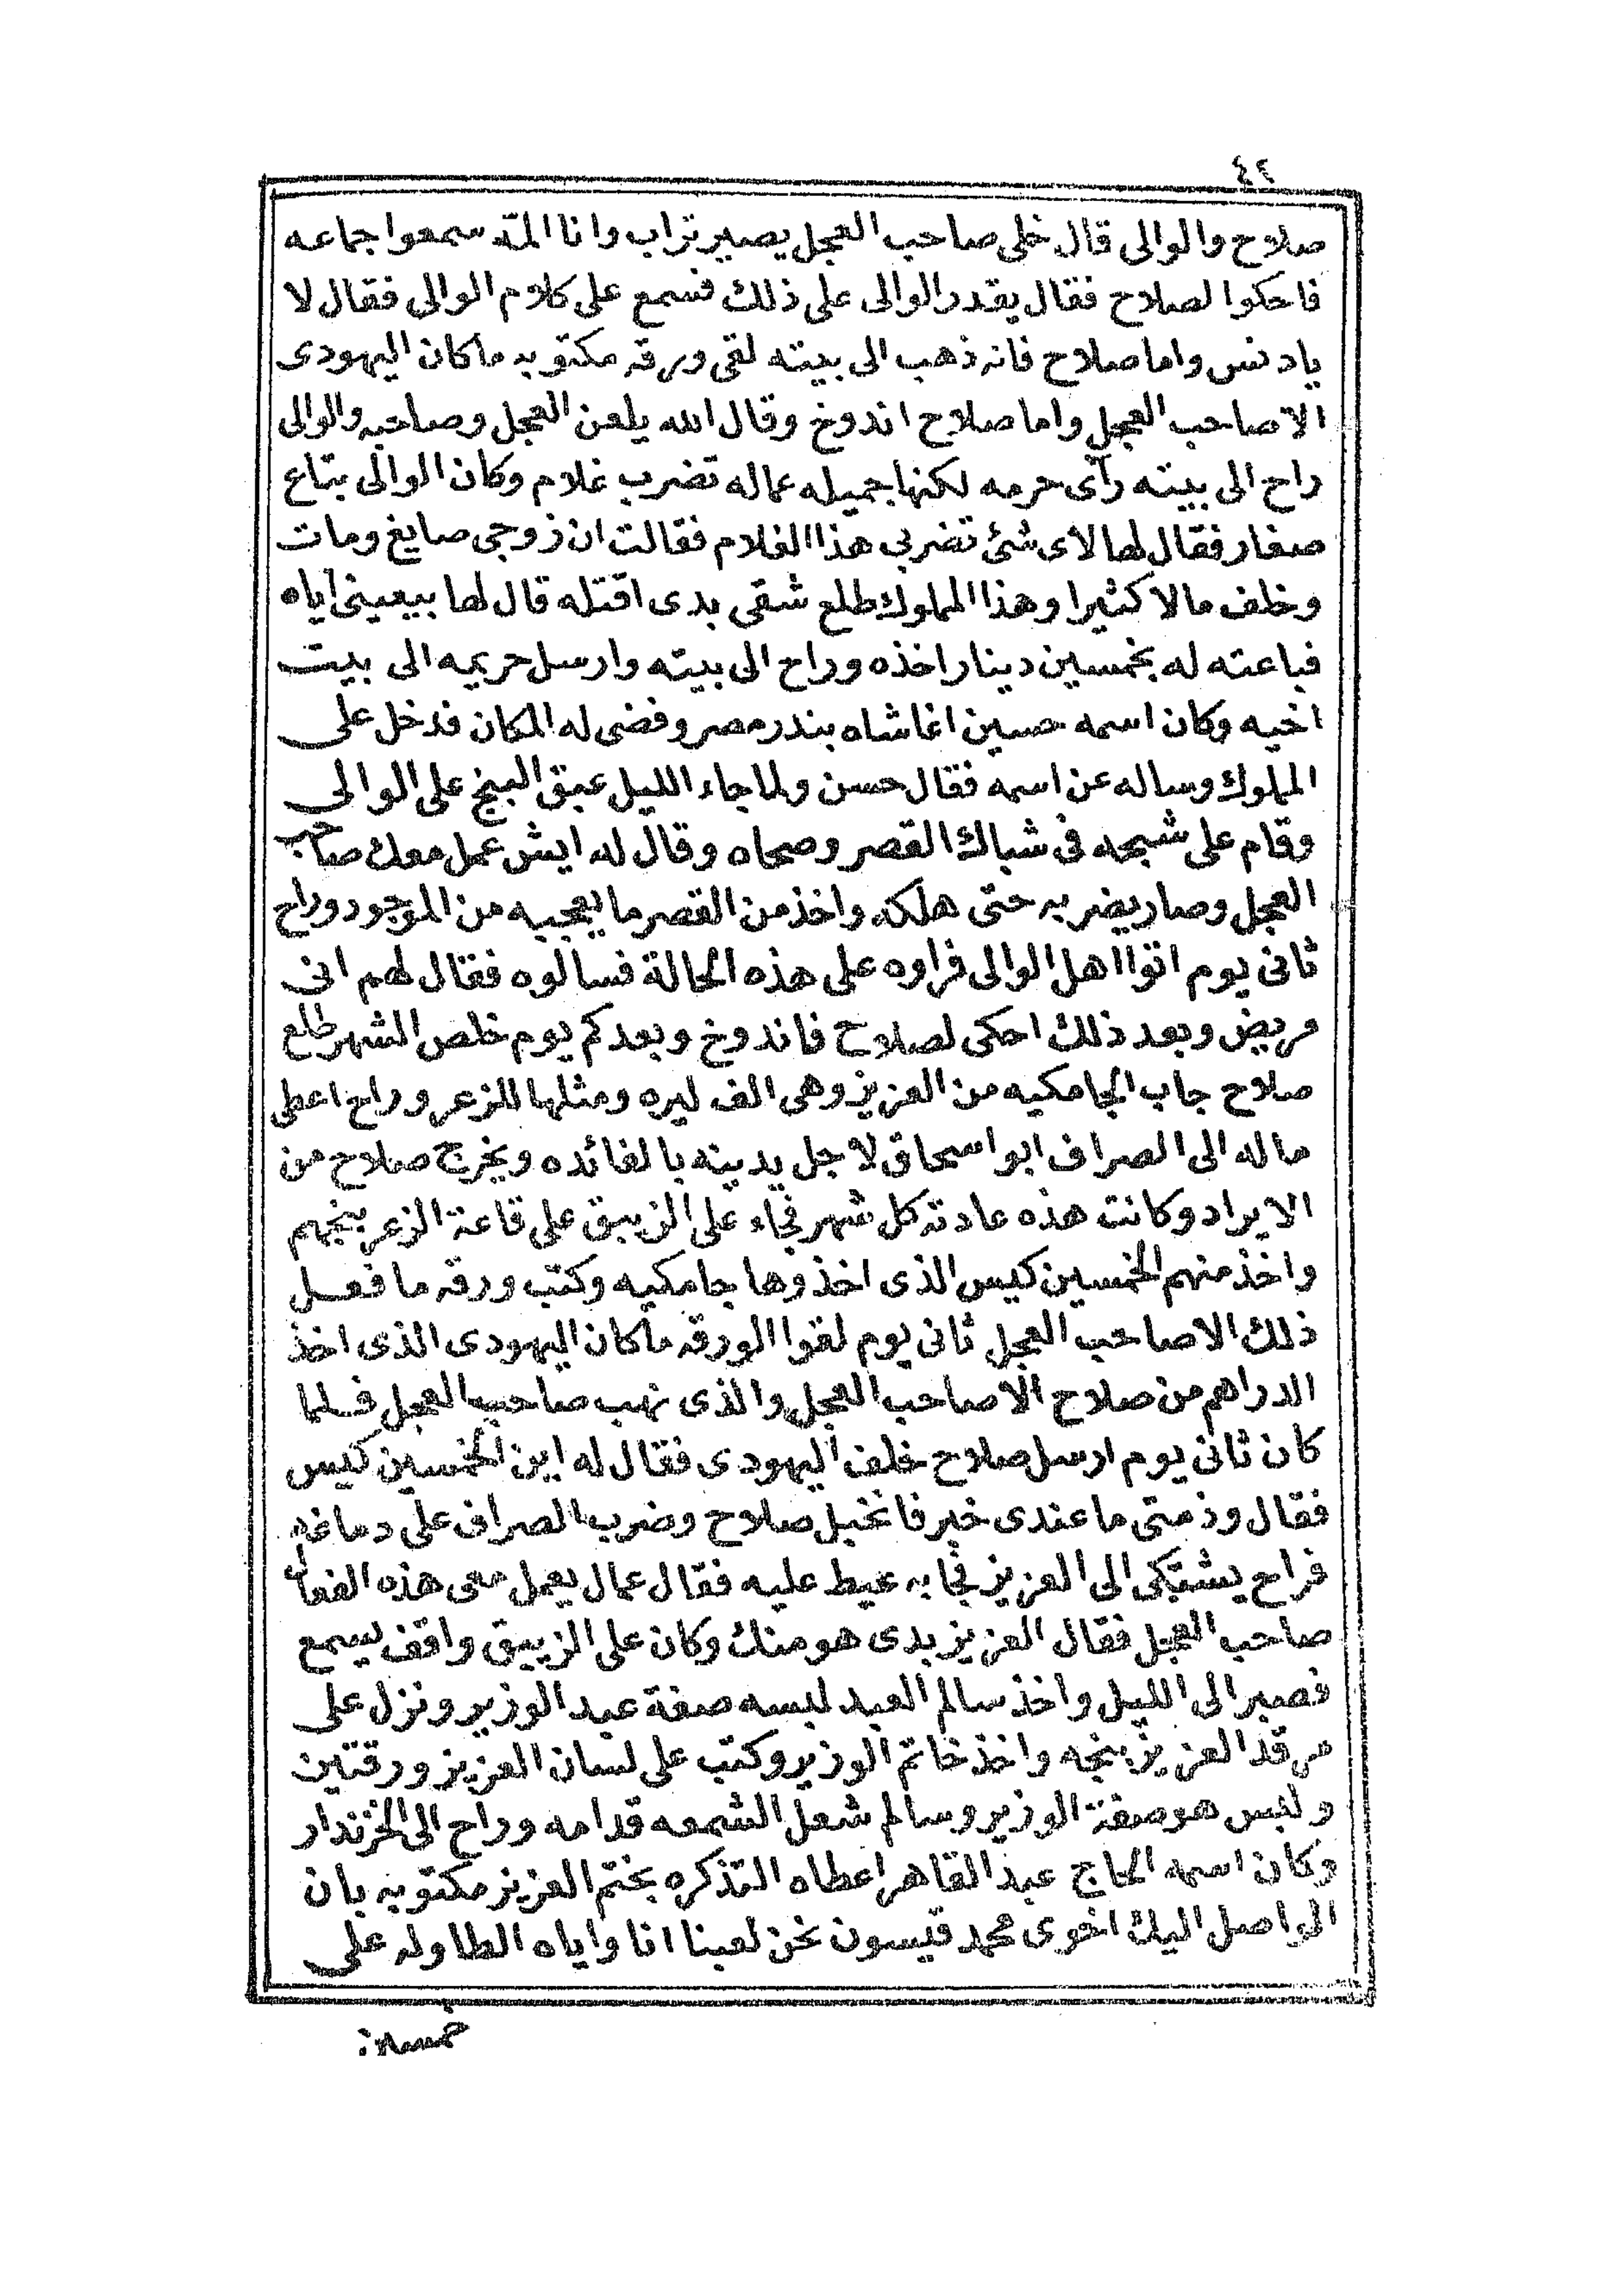 ٤٢
صلاح والوالى قال خلى صاحب العجل يصير تراب وانا المته سمعوا جماعه
فاحكوا لصلاح فقال يقدر الوالى على ذلك فسمع على كلام الوالى فقال لا
يادنس واما صلاح فانه ذهب الى بيته لقى ورقه مكتوبه ماكان اليهودى
الاصاحب العجل واما صلاح اندوخ وقال الله يلعن العجل وصاحبه والوالى
راح الى بيته رآى حرمه لكنها جميله عماله تضرب غلام وكان الوالى بتاع
صغار فقال لها لاى شئ تضربى هذا الغلام فقالت ان زوجى صايغ ومات
وخلف مالا كثيرا وهذا المملوك طلع شقى بدى اقتله قال لها بيعينى اياه
فباعته له بخمسين دينار اخذه وراح الى بيته وارسل حريمه الى بيت
اخيه وكان اسمه حسين اغا شاه بندر مصر وفضى له المكان فدخل على
المملوك وساله عن اسمه فقال حسن ولما جاء الليل عبق البنج على الوالى
وقام على شبحه فى شباك القصر وصحاه وقال له ايش عمل معك صاحب
العجل وصار يضربه حتى هلكه واخذ من القصر ما يعجبه من الموجود وراح
ثانى يوم اتوا اهل الوالى فراوه على هذه الحالة فسالوه فقال لهم انى
مريض وبعد ذلك احكى لصلاح فاندوخ وبعد كم يوم خلص الشهر طلع
صلاح جاب الجامكيه من العزيز وهى الف ليره ومثلها للزعر وراح اعطى
ماله الى الصراف ابو اسحاق لاجل يدينه بالفائده ويخرج صلاح من
الايراد وكانت هذه عادته كل شهر فجاء على الزيبق على قاعة الزعر بنجهم
واخذ منهم الخمسين كيس الذى اخذوها جامكيه وكتب ورقه ما فعل
ذلك الاصاحب العجل ثانى يوم لقوا الورقه ماكان اليهودى الذى اخذ
الدراهم من صلاح الا صاحب العجل والذى نهب صاحب العجل فلما
كان ثانى يوم ارسل صلاح خلف اليهودى فقال له اين الخمسين كيس
فقال وذمتى ما عندى خبر فانخبل صلاح وضرب الصراف على دماغه
فراح يشتكى الى العزيز فجابه عيط عليه فقال عمال يعمل معى هذه الفعال
صاحب العجل فقال العزيز بدى هو منك وكان على الزيبق واقف يسمع
فصبر الى الليل واخذ سالم العبد لبسه صفة عبد الوزير ونزل على
مرقد العزيز بنجه واخذ خاتم الوزير وكتب على لسان العزيز ورقتين
ولبس هو صفة الوزير وسالم شعل الشمعه قدامه وراح الى الخزندار
وكان اسمه الحاج عبد القاهر اعطاه التذكره بختم العزيز مكتوبه بان
الواصل اليك اخوى محمد قيسون نحن لعبنا انا واياه الطاوله على
خمسين